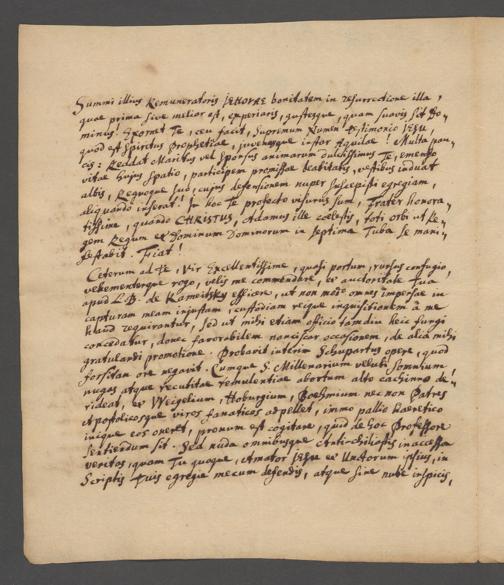 Summi illius Remuneratoris JEHOVAE bonitatem in resurrectione illa,
quae prima sive melior est, experiaris, gustesque, quam suavis sit Do-
minus! Exornet Te, ceu facit, Supremum Numen Testimonio JESU,
quod est Spiritus Prophetiae, juvenesque instar Aquilae! Multa pau-
cis: Reddat Maritus vel Sponsus animarum dulcissimus Te, emenso
vitae hujus spatio, participem promissae beatitatis, vestibus induat
albis, Regnoque suo, cujus defensionem nuper suscepisti egregiam,
aliquando inserat! In hoc Te profecto visurus sum, Frater honora-
tissime, quando CHRISTUS, Adamus ille coelestis, toti orbi ut Re-
gem Regum et Dominum Dominorum in septima Tuba se mani-
festabit. Fiat!
Ceterum ad Te, Vir Excellentissime, quasi portum, rursus confugio,
vehementerque rogo, velis me commendare, et auctoritate Tua
apud L.B. de Kameitsky efficere, ut non modo omnes impensae in
capturam meam injustam, custodiam recque inquisitionem à me
haud requirantur, sed ut mihi etiam officio tamdiu heic fungi
concedatur, donec favorabilem nanciscar occasionem, de alia mihi
gratulandi promotione. Probavit interim Schupartus opere, quod
forsitan ore negavit. Cumque S. Millenarium veluti somnium
nugas atque recutitae temulentiae abortum alto cachinno de-
rideat, et Weigelium, Hoburgium, Boehmium nec non Patres
Apostolicosque viros fanaticos appellet, immo pallio haeretico
inique eos oneret, pronum est cogitare, quid de hoc Professore
sentiendum sit. Sed nuda omnibusque Antichiliastis inaccessa
veritas, quam Tu quoque, Amator JESU et Unctorum ipsius, in
Scriptis Tuis egregie mecum defendis, atque sine nube inspicis,